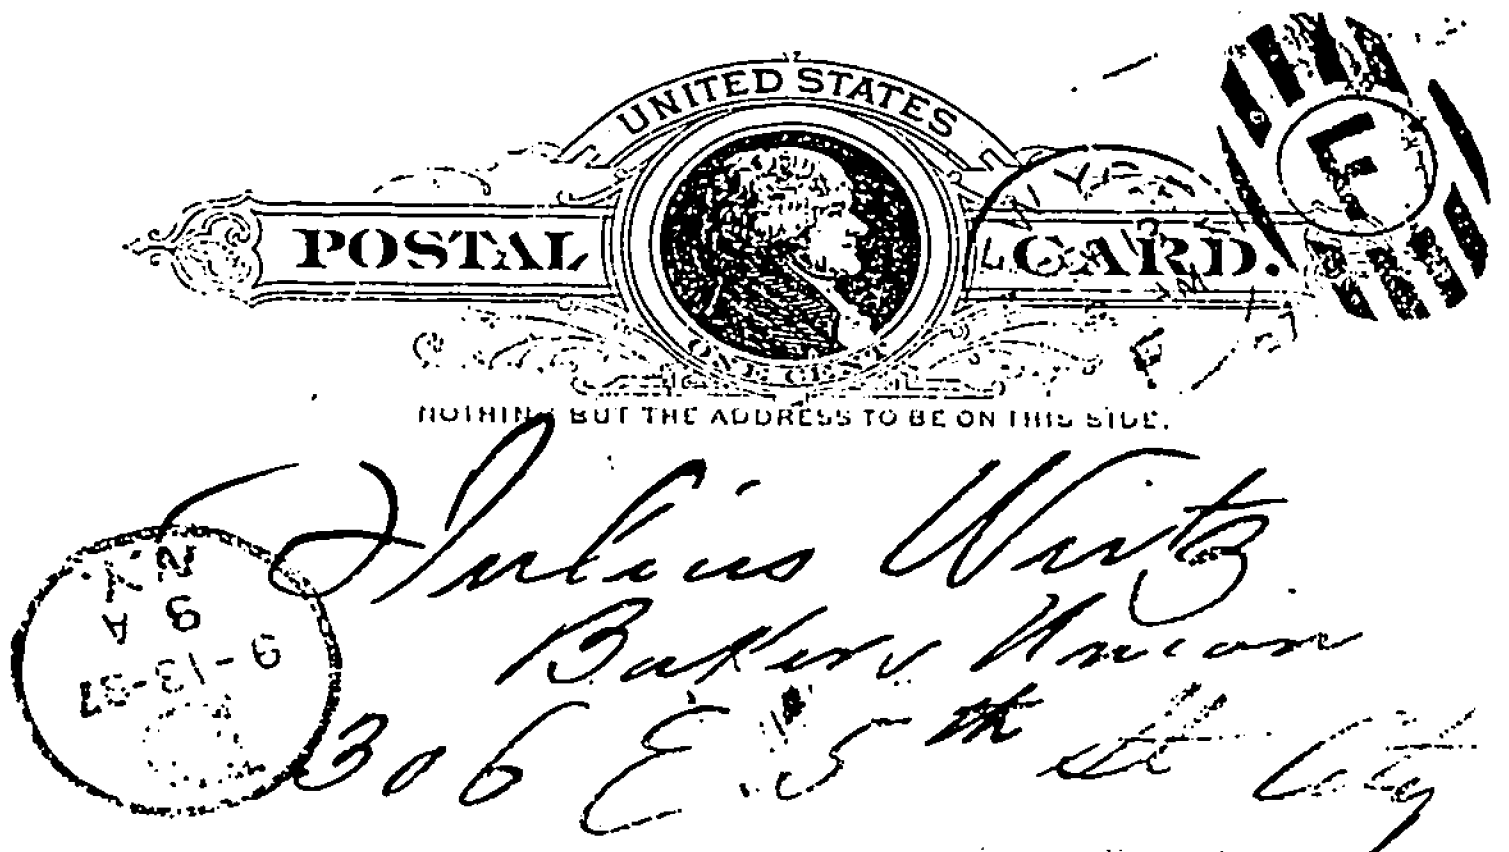 UNITED STATES
POSTAL CARD.
ONE CENT
NOTHING BUT THE ADDRESS TO BE ON THIS SIDE.
F
N.Y.
Julius Wirtz
Bakery Union
306 E. 5th St City
N.Y.
9 A
9-13-87